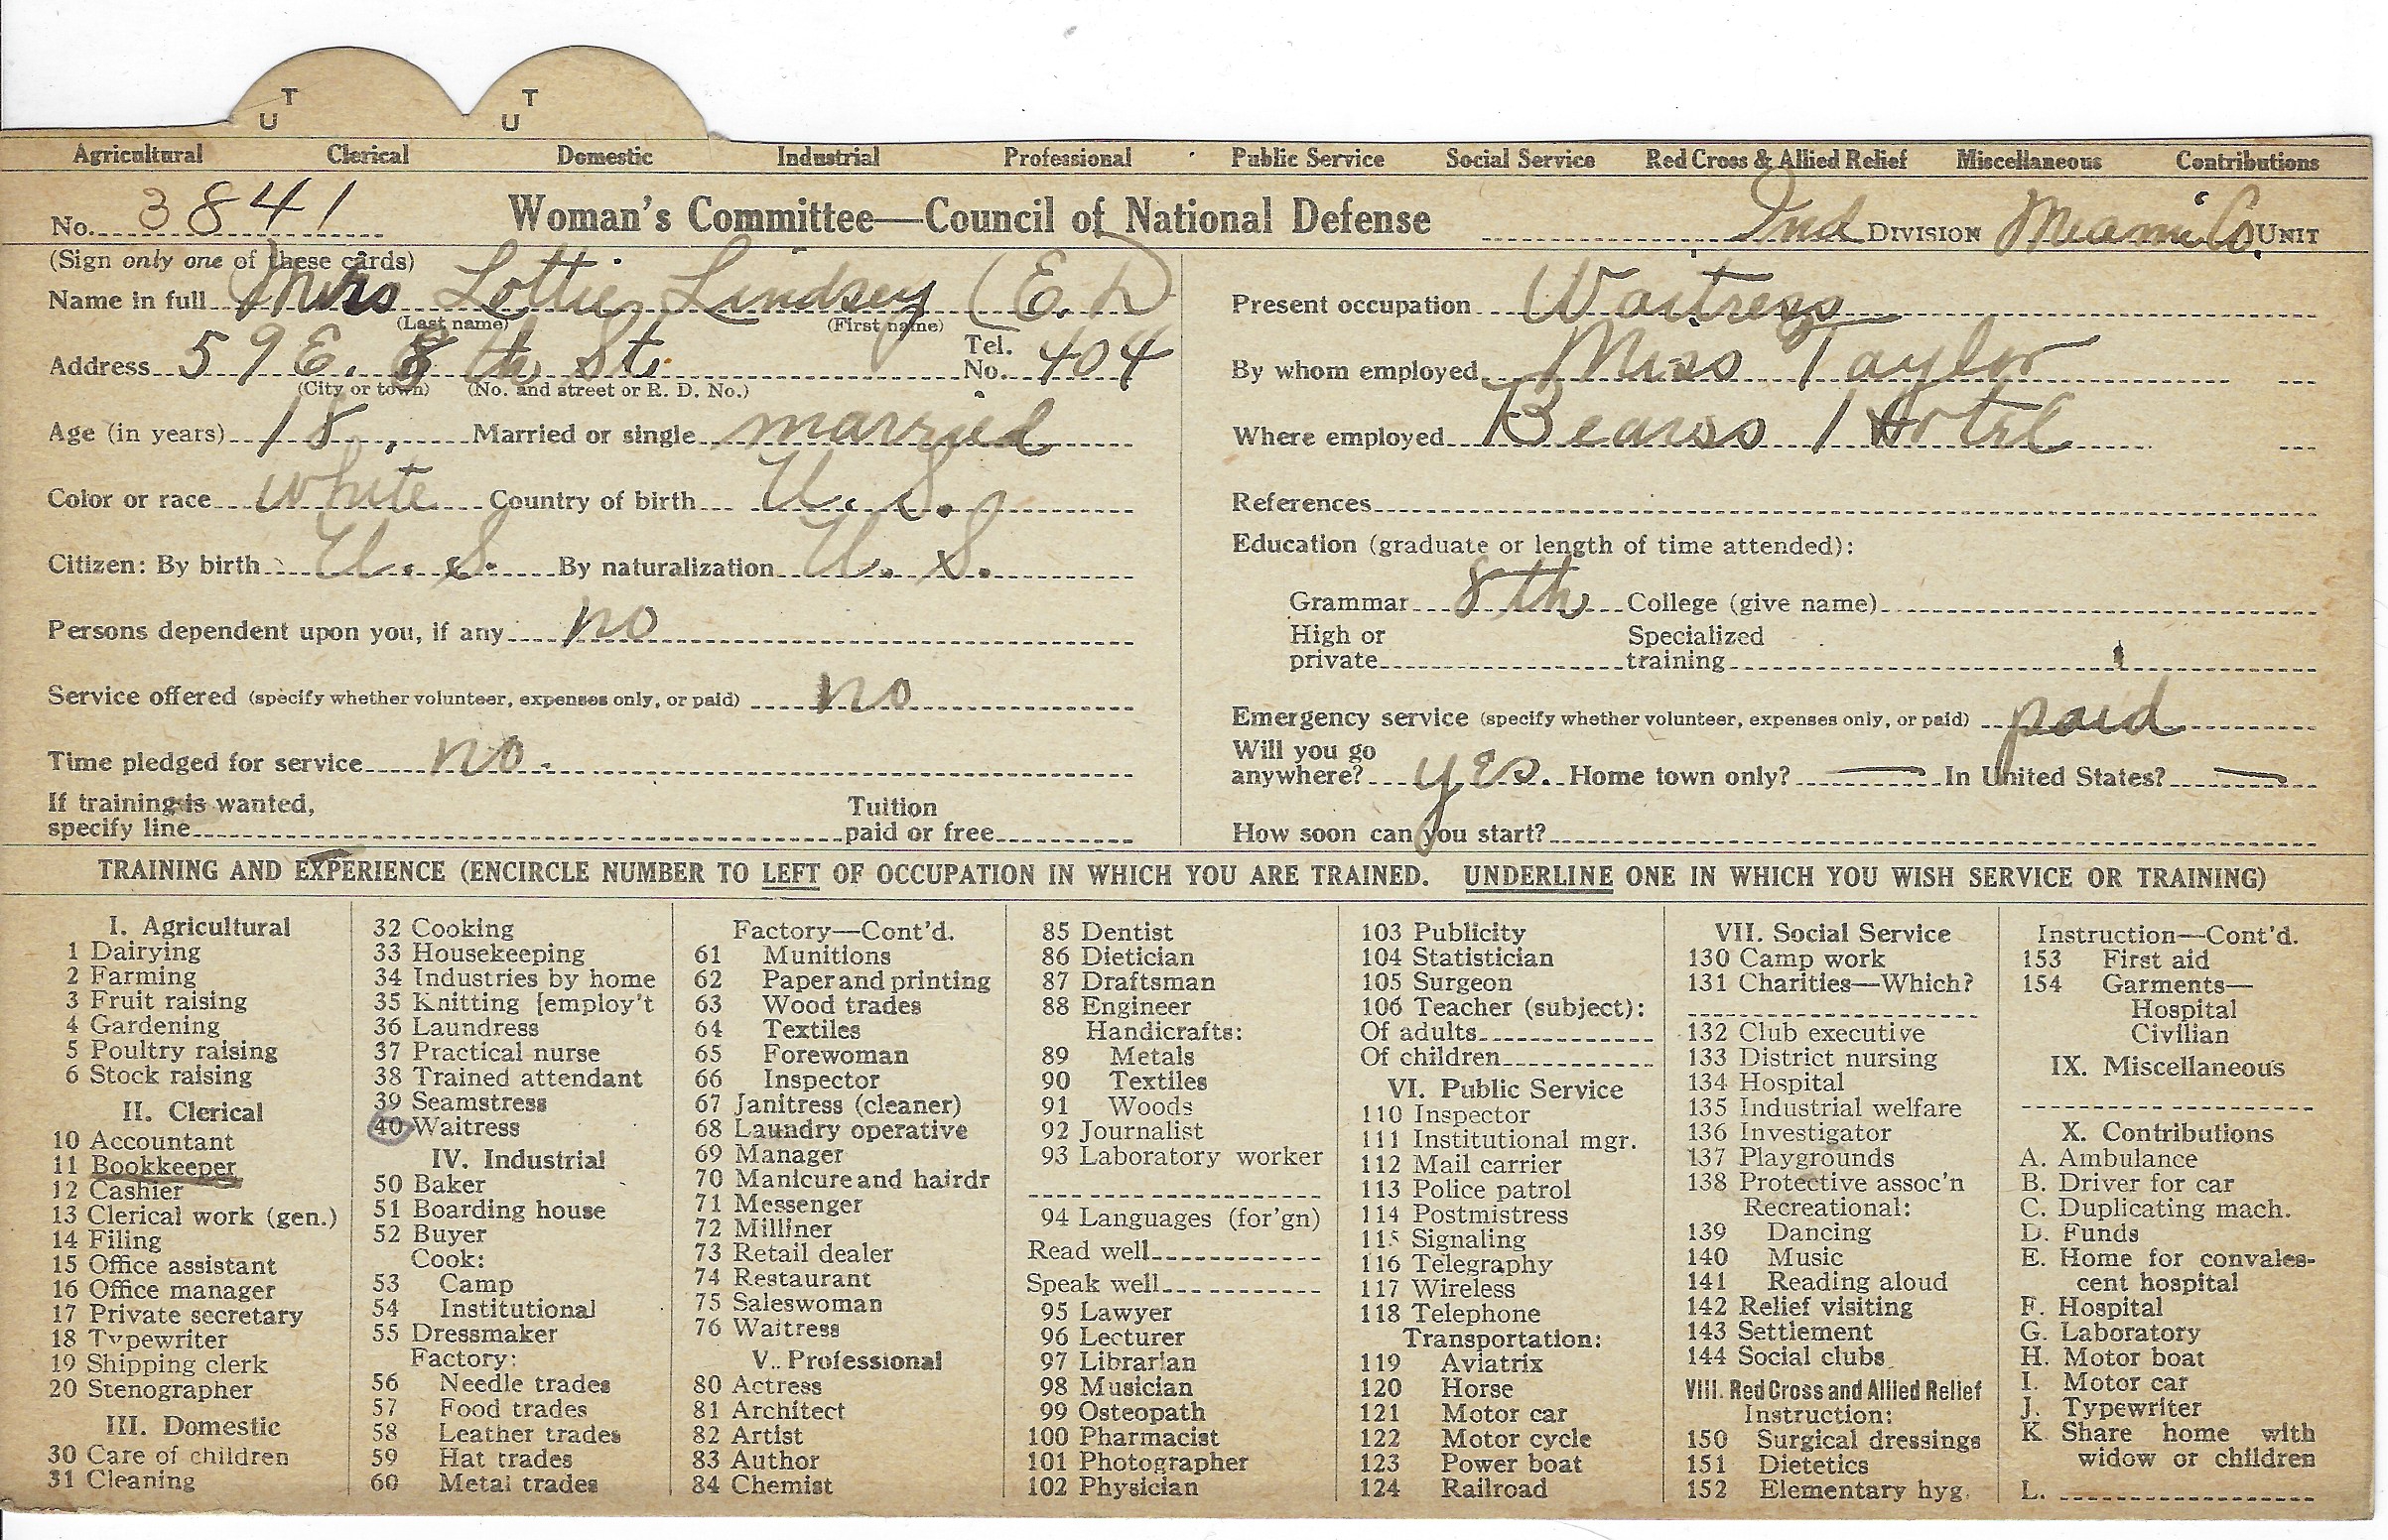 T T
U U
Agricultural Clerical Domestic Industrial Professional Public Service Social Service Red Cross & Allied Relief Miscellaneous Contributions
No. 3841 Woman's Committee—Council of National Defense Ind DIVISION Miami Co. UNIT
(Sign only one of these cards)
Name in full Mrs Lottie Lindsey (E.D)
(Last name) (First name)
Address 59 E. 8th St. Tel. No. 404
(City or town) (No. and street or R. D. No.)
Age (in years) 18. Married or single married
Color or race white Country of birth U. S.
Citizen: By birth U. S. By naturalization U. S.
Persons dependent upon you, if any no
Service offered (specify whether volunteer, expenses only, or paid) no
Time pledged for service no.
If training is wanted,
specify line
Tuition
paid or free
Present occupation Waitress
By whom employed Miss Taylor
Where employed Bearss Hotel
References
Education (graduate or length of time attended):
Grammar 8th College (give name)
High or
private
Specialized
training
Emergency service (specify whether volunteer, expenses only, or paid) paid
Will you go
anywhere? yes. Home town only? — In United States? —
How soon can you start?
TRAINING AND EXPERIENCE (ENCIRCLE NUMBER TO LEFT OF OCCUPATION IN WHICH YOU ARE TRAINED. UNDERLINE ONE IN WHICH YOU WISH SERVICE OR TRAINING)
I. Agricultural
1 Dairying
2 Farming
3 Fruit raising
4 Gardening
5 Poultry raising
6 Stock raising
II. Clerical
10 Accountant
11 Bookkeeper
12 Cashier
13 Clerical work (gen.)
14 Filing
15 Office assistant
16 Office manager
17 Private secretary
18 Typewriter
19 Shipping clerk
20 Stenographer
III. Domestic
30 Care of children
31 Cleaning
32 Cooking
33 Housekeeping
34 Industries by home
35 Knitting [employ't
36 Laundress
37 Practical nurse
38 Trained attendant
39 Seamstress
40 Waitress
IV. Industrial
50 Baker
51 Boarding house
52 Buyer
Cook:
53 Camp
54 Institutional
55 Dressmaker
Factory:
56 Needle trades
57 Food trades
58 Leather trades
59 Hat trades
60 Metal trades
Factory—Cont'd.
61 Munitions
62 Paper and printing
63 Wood trades
64 Textiles
65 Forewoman
66 Inspector
67 Janitress (cleaner)
68 Laundry operative
69 Manager
70 Manicure and hairdr
71 Messenger
72 Milliner
73 Retail dealer
74 Restaurant
75 Saleswoman
76 Waitress
V. Professional
80 Actress
81 Architect
82 Artist
83 Author
84 Chemist
85 Dentist
86 Dietician
87 Draftsman
88 Engineer
Handicrafts:
89 Metals
90 Textiles
91 Woods
92 Journalist
93 Laboratory worker
94 Languages (for'gn)
Read well
Speak well
95 Lawyer
96 Lecturer
97 Librarian
98 Musician
99 Osteopath
100 Pharmacist
101 Photographer
102 Physician
103 Publicity
104 Statistician
105 Surgeon
106 Teacher (subject):
Of adults
Of children
VI. Public Service
110 Inspector
111 Institutional mgr.
112 Mail carrier
113 Police patrol
114 Postmistress
115 Signaling
116 Telegraphy
117 Wireless
118 Telephone
Transportation:
119 Aviatrix
120 Horse
121 Motor car
122 Motor cycle
123 Power boat
124 Railroad
VII. Social Service
130 Camp work
131 Charities—Which?
132 Club executive
133 District nursing
134 Hospital
135 Industrial welfare
136 Investigator
137 Playgrounds
138 Protective assoc'n
Recreational:
139 Dancing
140 Music
141 Reading aloud
142 Relief visiting
143 Settlement
144 Social clubs
VIII. Red Cross and Allied Relief
Instruction:
150 Surgical dressings
151 Dietetics
152 Elementary hyg.
Instruction—Cont'd.
153 First aid
154 Garments—
Hospital
Civilian
IX. Miscellaneous
X. Contributions
A. Ambulance
B. Driver for car
C. Duplicating mach.
D. Funds
E. Home for convales-
cent hospital
F. Hospital
G. Laboratory
H. Motor boat
I. Motor car
J. Typewriter
K Share home with
widow or children
L.